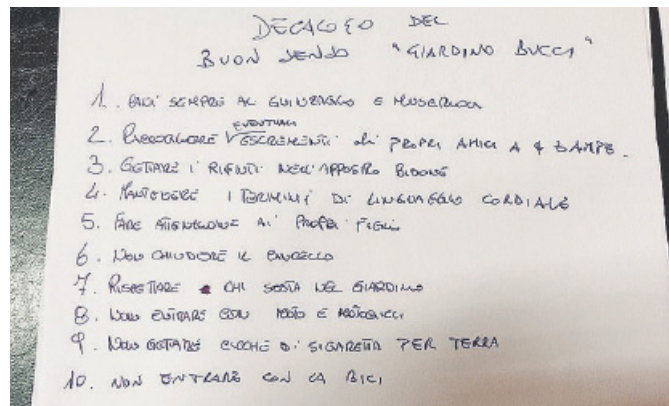 DECALOGO DEL
BUON SENSO "GIARDINO BUCCI"
1. CANI SEMPRE AL GUINZAGLIO E MUSERUOLA
EVENTUALI
2. RACCOGLIERE ESCREMENTI di PROPRI AMICI A 4 ZAMPE.
3. GETTARE i RIFIUTI NELL'APPOSITO BIDONE
4. MANTENERE I TERMINI DI LINGUAGGIO CORDIALE
5. FARE ATTENZIONE Ai PROPRi FIGLI
6. NON CHIUDERE IL CANCELLO
7. RISPETTARE CHI SOSTA NEL GIARDINO
8. NON ENTRARE CON MOTO E MOTOCICLI
9. NON GETTARE CICCHE Di SIGARETTA PER TERRA
10. NON ENTRARE CON LA BICI